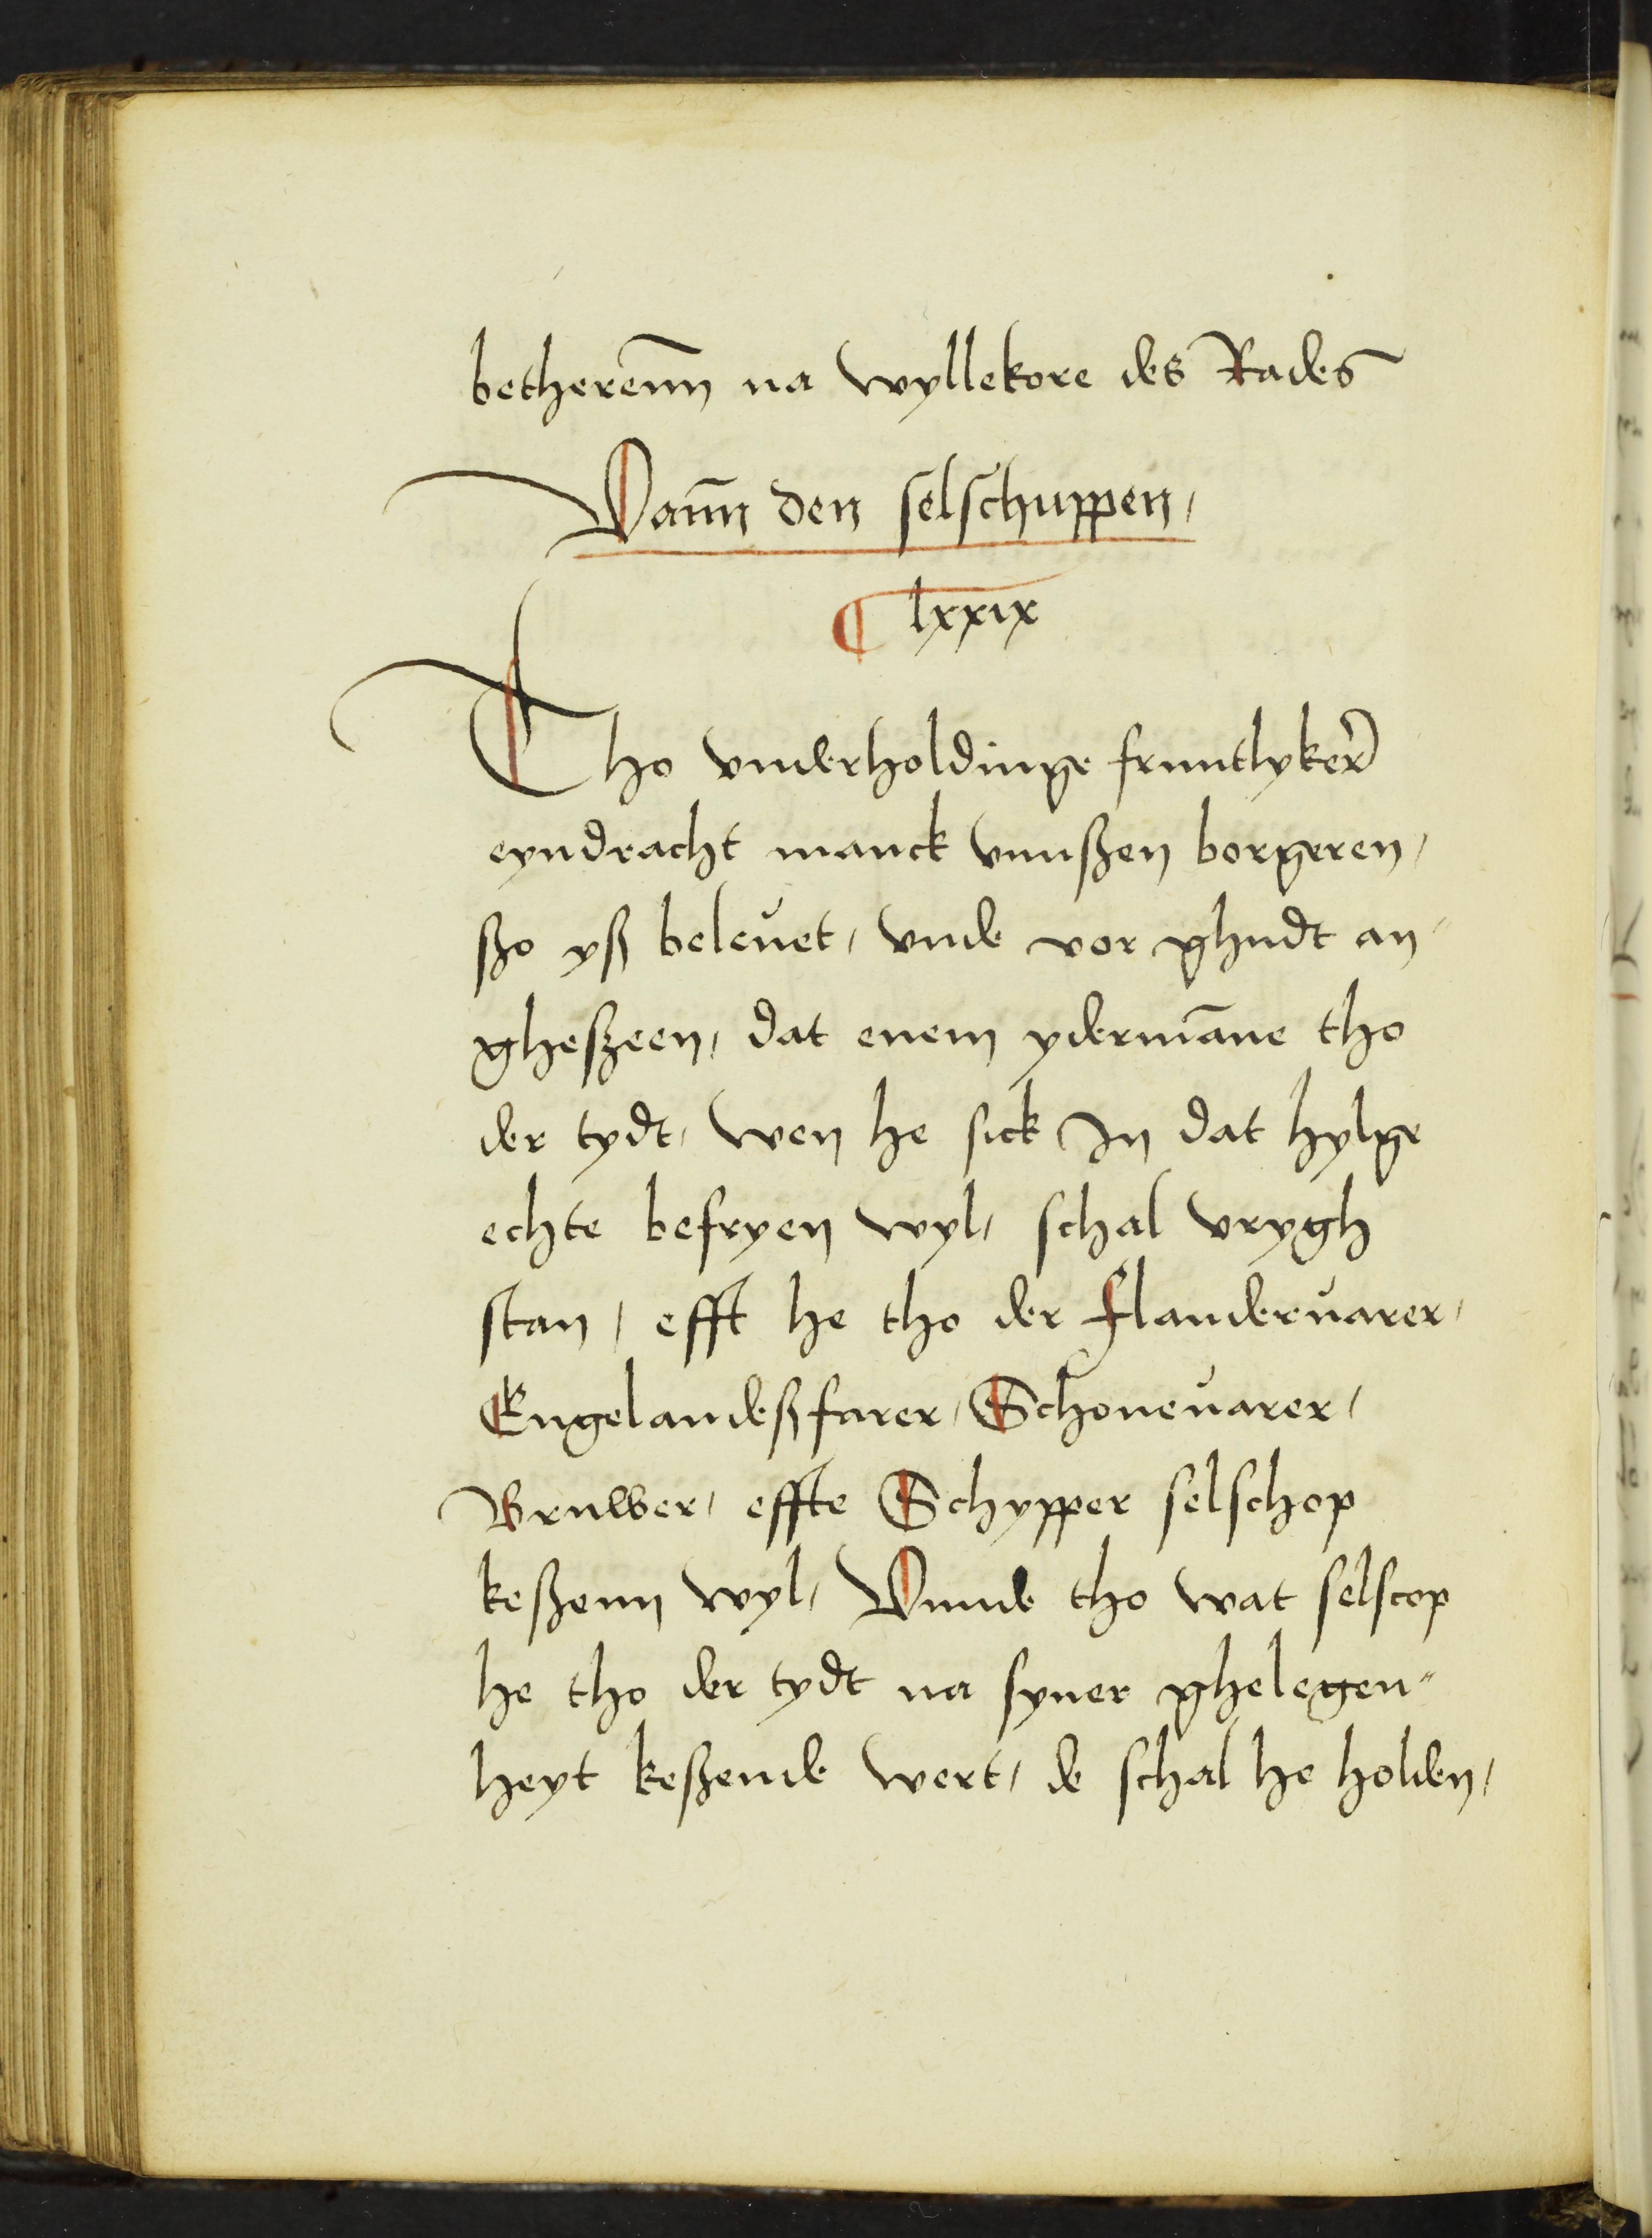 betherenn na wyllekore des Rades
Vann den selschuppen,
¶ lxxix
Tho vnderholdinge fruntlyker
eyndracht manck vnnßen borgeren,
ßo yß beleuet, vnde vor ghudt an⸗
gheßeen, dat enem ydermāne tho
der tydt, wen he sick In dat hylge
echte befryen wyl, schal vrygh
stan, efft he tho der Flanderuarer,
Engelandeßfarer, Schoneuarer,
Bruwer, effte Schypper selschop
keßenn wyl, Vnnde tho wat selscop
he tho der tydt na syner ghelegen⸗
heyt keßende wert, de schal he holden,